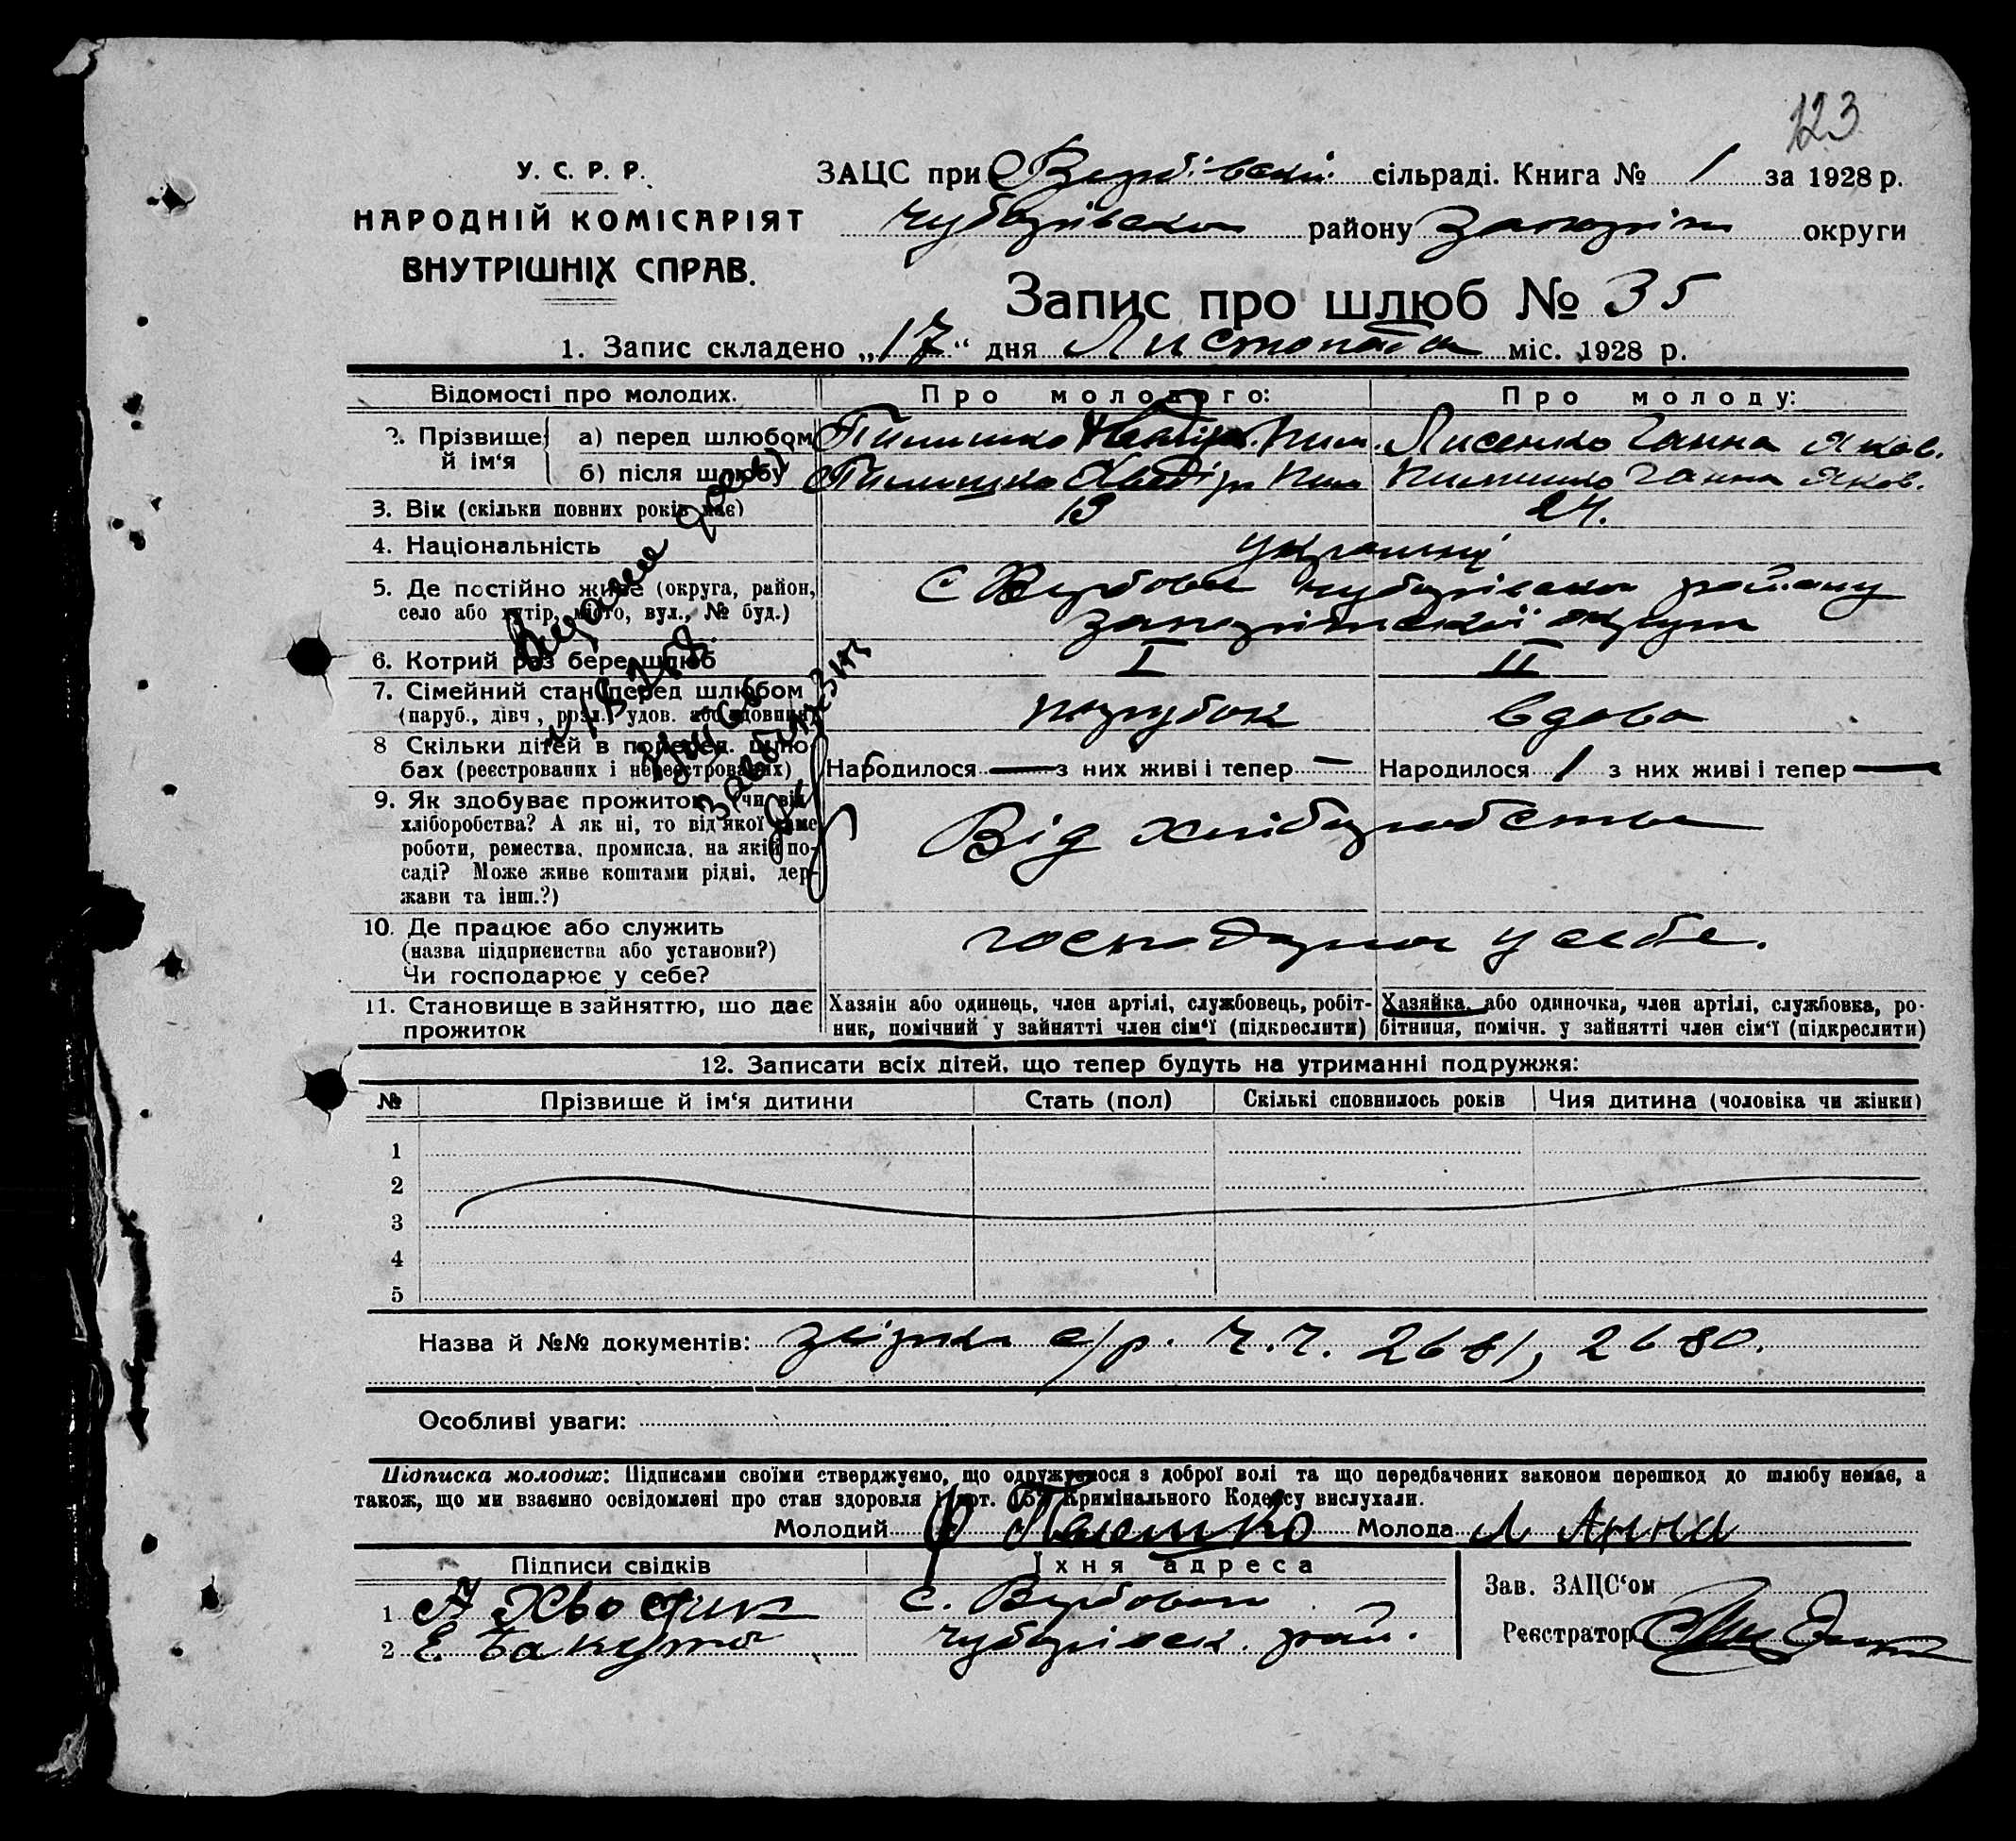 123
У. С. Р. Р.
НАРОДНІЙ КОМІСАРІЯТ
ВНУТРІШНІХ СПРАВ.
ЗАЦС при Вербівській сільраді. Книга № 1 за 1928 р.
Чубарівського району Запоріж округи
Запис про шлюб № 35
1. Запис складено „17“ дня Листопада міс. 1928 р.
Відомості про молодих.
Про молодого:
Про молоду:
2. Прізвище й ім‘я
а) перед шлюбом
Лисенко Ганна Яков.
б) після шлюбу
Ганна Яков.
3. Вік (скільки повних років має)
19
24.
4. Національність
українці
5. Де постійно живе (округа, район,
село або хутір, місто, вул., № буд.)
с Вербове Чубарівського району
Запорізької округи
6. Котрий раз бере шлюб
I
II
7. Сімейний стан перед шлюбом
(наруб., дівч., розл., удов. або вдовиця)
парубок
вдова
8 Скільки дітей в поперед. шлю-
бах (реєстрованих і нереєстрованих)
Народилося — з них живі і тепер —
Народилося 1 з них живі і тепер —
9. Як здобуває прожиток (чи від
хліборобства? А як ні, то від якої саме
роботи, ремества, промисла, на якій по-
саді? Може живе коштами рідні, дер-
жави та інш.?)
Від хліборобства
10. Де працює або служить
(назва підприєнства або установи?)
Чи господарює у себе?
господарює у себе.
11. Становище в зайняттю, що дає
прожиток
Хазяін або одинець, член артілі, службовець, робіт-
ник, помічний у зайнятті член сім‘ї (підкреслити)
Хазяйка, або одиночка, член артілі, службовка, ро-
бітниця, помічн. у зайнятті член сім‘ї (підкреслити)
12. Записати всіх дітей, що тепер будуть на утриманні подружжя:
№ Прізвище й ім‘я дитини Стать (пол) Скількі сповнилось років Чия дитина (чоловіка чи жінки)
1
2
3
4
5
Назва й №№ документів: с/р. ч.ч. 2681, 2680.
Особливі уваги:
Підписка молодих: Підписами своїми стверджуємо, що одружуємося з доброї волі та що передбачених законом перешкод до шлюбу немає, а
також, що ми взаємно освідомлені про стан здоровля і арт. Кримінального Кодексу вислухали.
Молодий Молода Л Анна
Підписи свідків
Їхня адреса
1
с. Вербове
2 Е.
Чубарівськ. рай.
Зав. ЗАЦС‘ом
Реєстратор